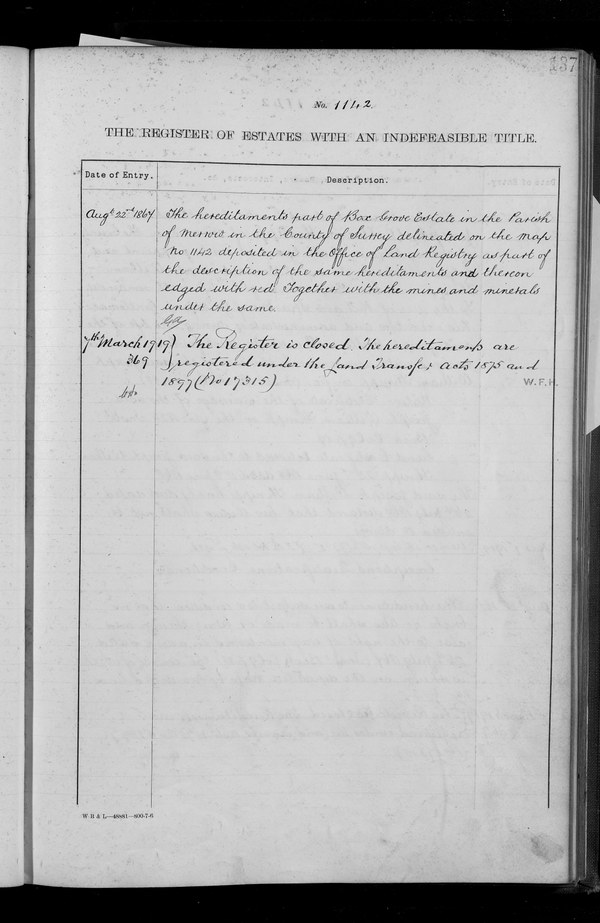 137
No. 1142
THE REGISTER OF ESTATES WITH AN INDEFEASIBLE TITLE.
Date of Entry. Description.
Augt 22nd 1867 The hereditaments part of Box Grove Estate in the Parish
of Merrow in the County of Surrey delineated on the map
No 1142 deposited in the Office of Land Registry as part of
the description of the same hereditaments and thereon
edged with red Together with the mines and minerals
under the same.
7th March 1919 } The Register is closed. The hereditaments are
369 registered under the Land Transfer Acts 1875 and
1897 (No 17315)
W.F.H.
W B & L—46981—800-7-6